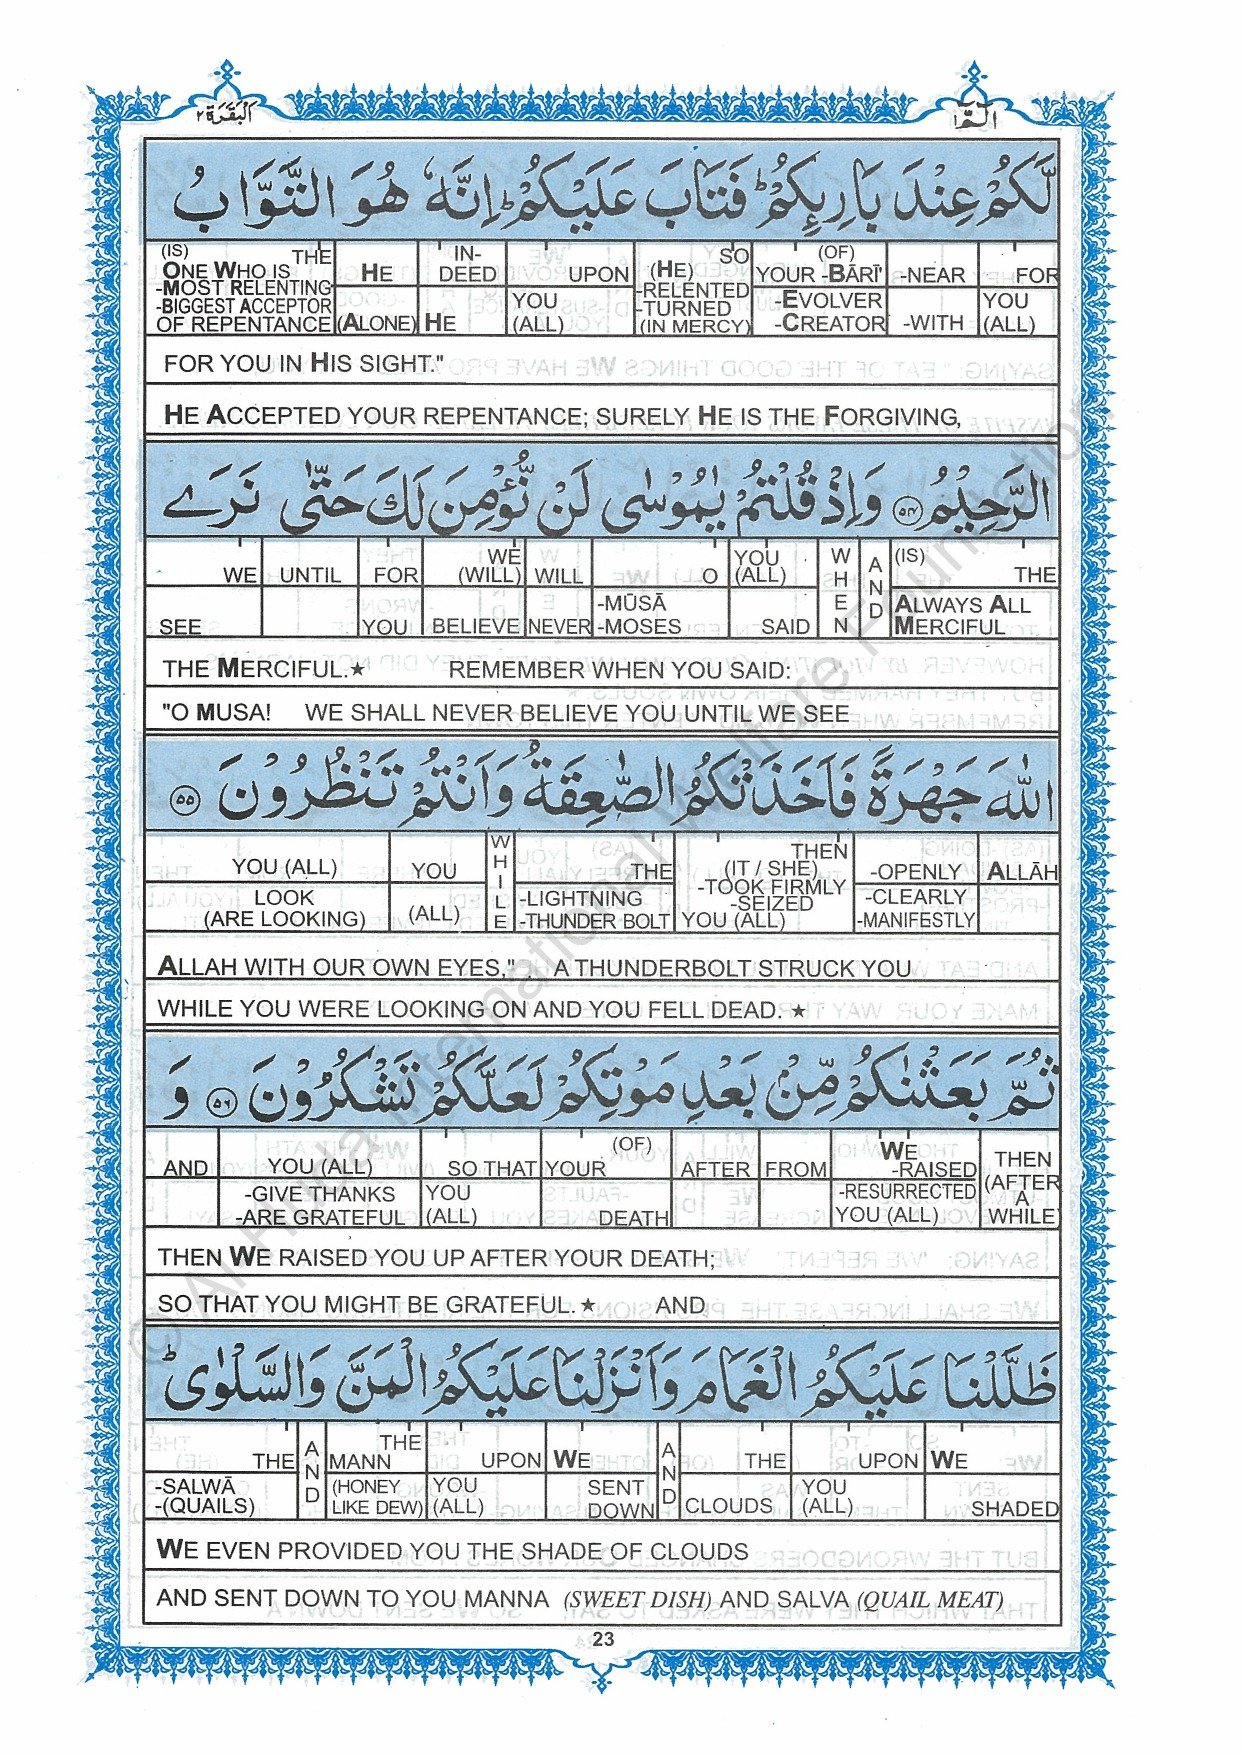 الٓمّٓ ١
اَلْبَقَرَة ٢
لَّكُمْ عِنْدَ بَارِئِكُمْ ؕ فَتَابَ عَلَيْكُمْ ؕ اِنَّهٗ هُوَ التَّوَّابُ
FOR YOU (ALL) | -NEAR -WITH | (OF) YOUR -BĀRĪ' -EVOLVER -CREATOR | SO (HE) -RELENTED -TURNED (IN MERCY) | UPON YOU (ALL) | IN-DEED HE | HE (ALONE) | (IS) THE ONE WHO IS -MOST RELENTING -BIGGEST ACCEPTOR OF REPENTANCE
FOR YOU IN HIS SIGHT."
HE ACCEPTED YOUR REPENTANCE; SURELY HE IS THE FORGIVING,
الرَّحِيْمُ ﴿۵۴﴾ وَاِذْ قُلْتُمْ يٰمُوْسٰى لَنْ نُّؤْمِنَ لَكَ حَتّٰى نَرَے
(IS) THE ALWAYS ALL MERCIFUL | AND | WHEN | YOU (ALL) SAID | O -MŪSĀ -MOSES | WILL NEVER | WE (WILL) BELIEVE | FOR YOU | UNTIL | WE SEE
THE MERCIFUL.★ REMEMBER WHEN YOU SAID:
"O MUSA! WE SHALL NEVER BELIEVE YOU UNTIL WE SEE
اللّٰهَ جَهْرَةً فَاَخَذَتْكُمُ الصّٰعِقَةُ وَاَنْتُمْ تَنْظُرُوْنَ ﴿۵۵﴾
ALLĀH | -OPENLY -CLEARLY -MANIFESTLY | THEN (IT / SHE) -TOOK FIRMLY -SEIZED YOU (ALL) | THE -LIGHTNING -THUNDER BOLT | WHILE | YOU (ALL) | YOU (ALL) LOOK (ARE LOOKING)
ALLAH WITH OUR OWN EYES," A THUNDERBOLT STRUCK YOU
WHILE YOU WERE LOOKING ON AND YOU FELL DEAD. ★
ثُمَّ بَعَثْنٰكُمْ مِّنْۢ بَعْدِ مَوْتِكُمْ لَعَلَّكُمْ تَشْكُرُوْنَ ﴿۵۶﴾ وَ
THEN (AFTER A WHILE) | WE -RAISED -RESURRECTED YOU (ALL) | FROM | AFTER | (OF) YOUR DEATH | SO THAT YOU (ALL) | YOU (ALL) -GIVE THANKS -ARE GRATEFUL | AND
THEN WE RAISED YOU UP AFTER YOUR DEATH;
SO THAT YOU MIGHT BE GRATEFUL. ★ AND
ظَلَّلْنَا عَلَيْكُمُ الْغَمَامَ وَاَنْزَلْنَا عَلَيْكُمُ الْمَنَّ وَالسَّلْوٰى ؕ
WE SHADED | UPON YOU (ALL) | THE CLOUDS | AND | WE SENT DOWN | UPON YOU (ALL) | THE MANN (HONEY LIKE DEW) | AND | THE -SALWĀ -(QUAILS)
WE EVEN PROVIDED YOU THE SHADE OF CLOUDS
AND SENT DOWN TO YOU MANNA (SWEET DISH) AND SALVA (QUAIL MEAT)
23
© Al Huda International Welfare Foundation